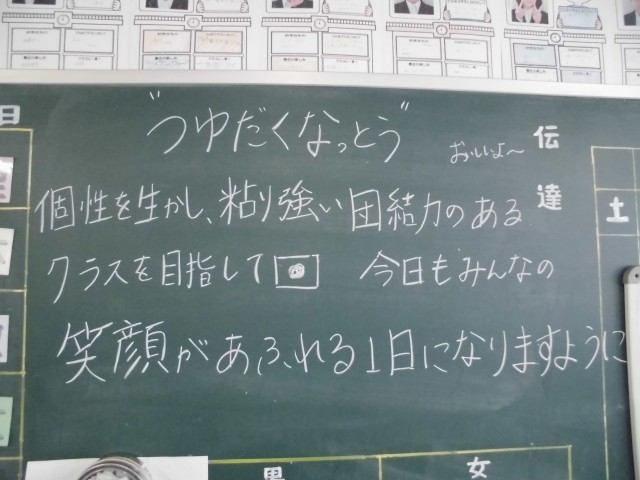 "つゆだくなっとう"
おいしいよ～
伝達
個性を生かし、粘り強い団結力のある
クラスを目指して
今日もみんなの
笑顔があふれる1日になりますように
日
土
男
女